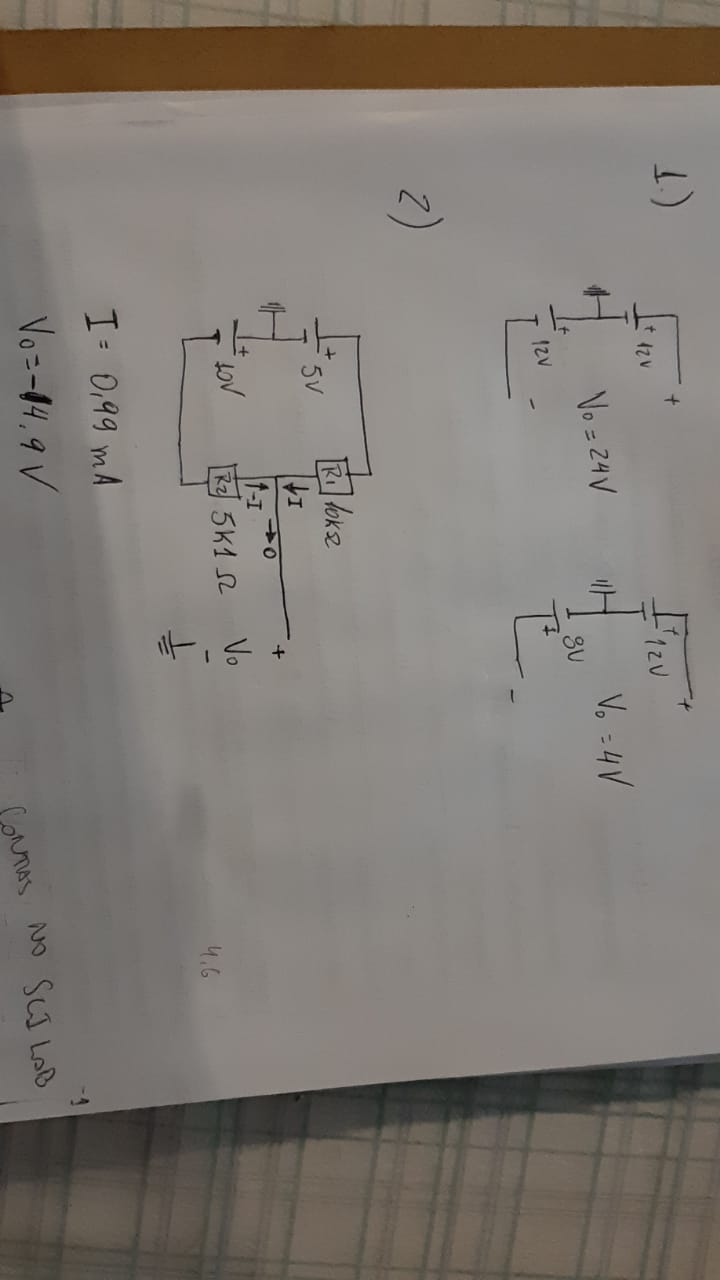 1.)
+
+ 12V
+
12V
-
V₀ = 24V
+
+ 12V
8V
+
-
V₀ = 4V
2)
+
5V
+
10V
R1
10kΩ
↓I
↑-I
→0
R2
5k1Ω
+
V₀
-
I = 0,99 mA
V₀ = -4,9V
4,6
CONTAS NO SCILAB
-1